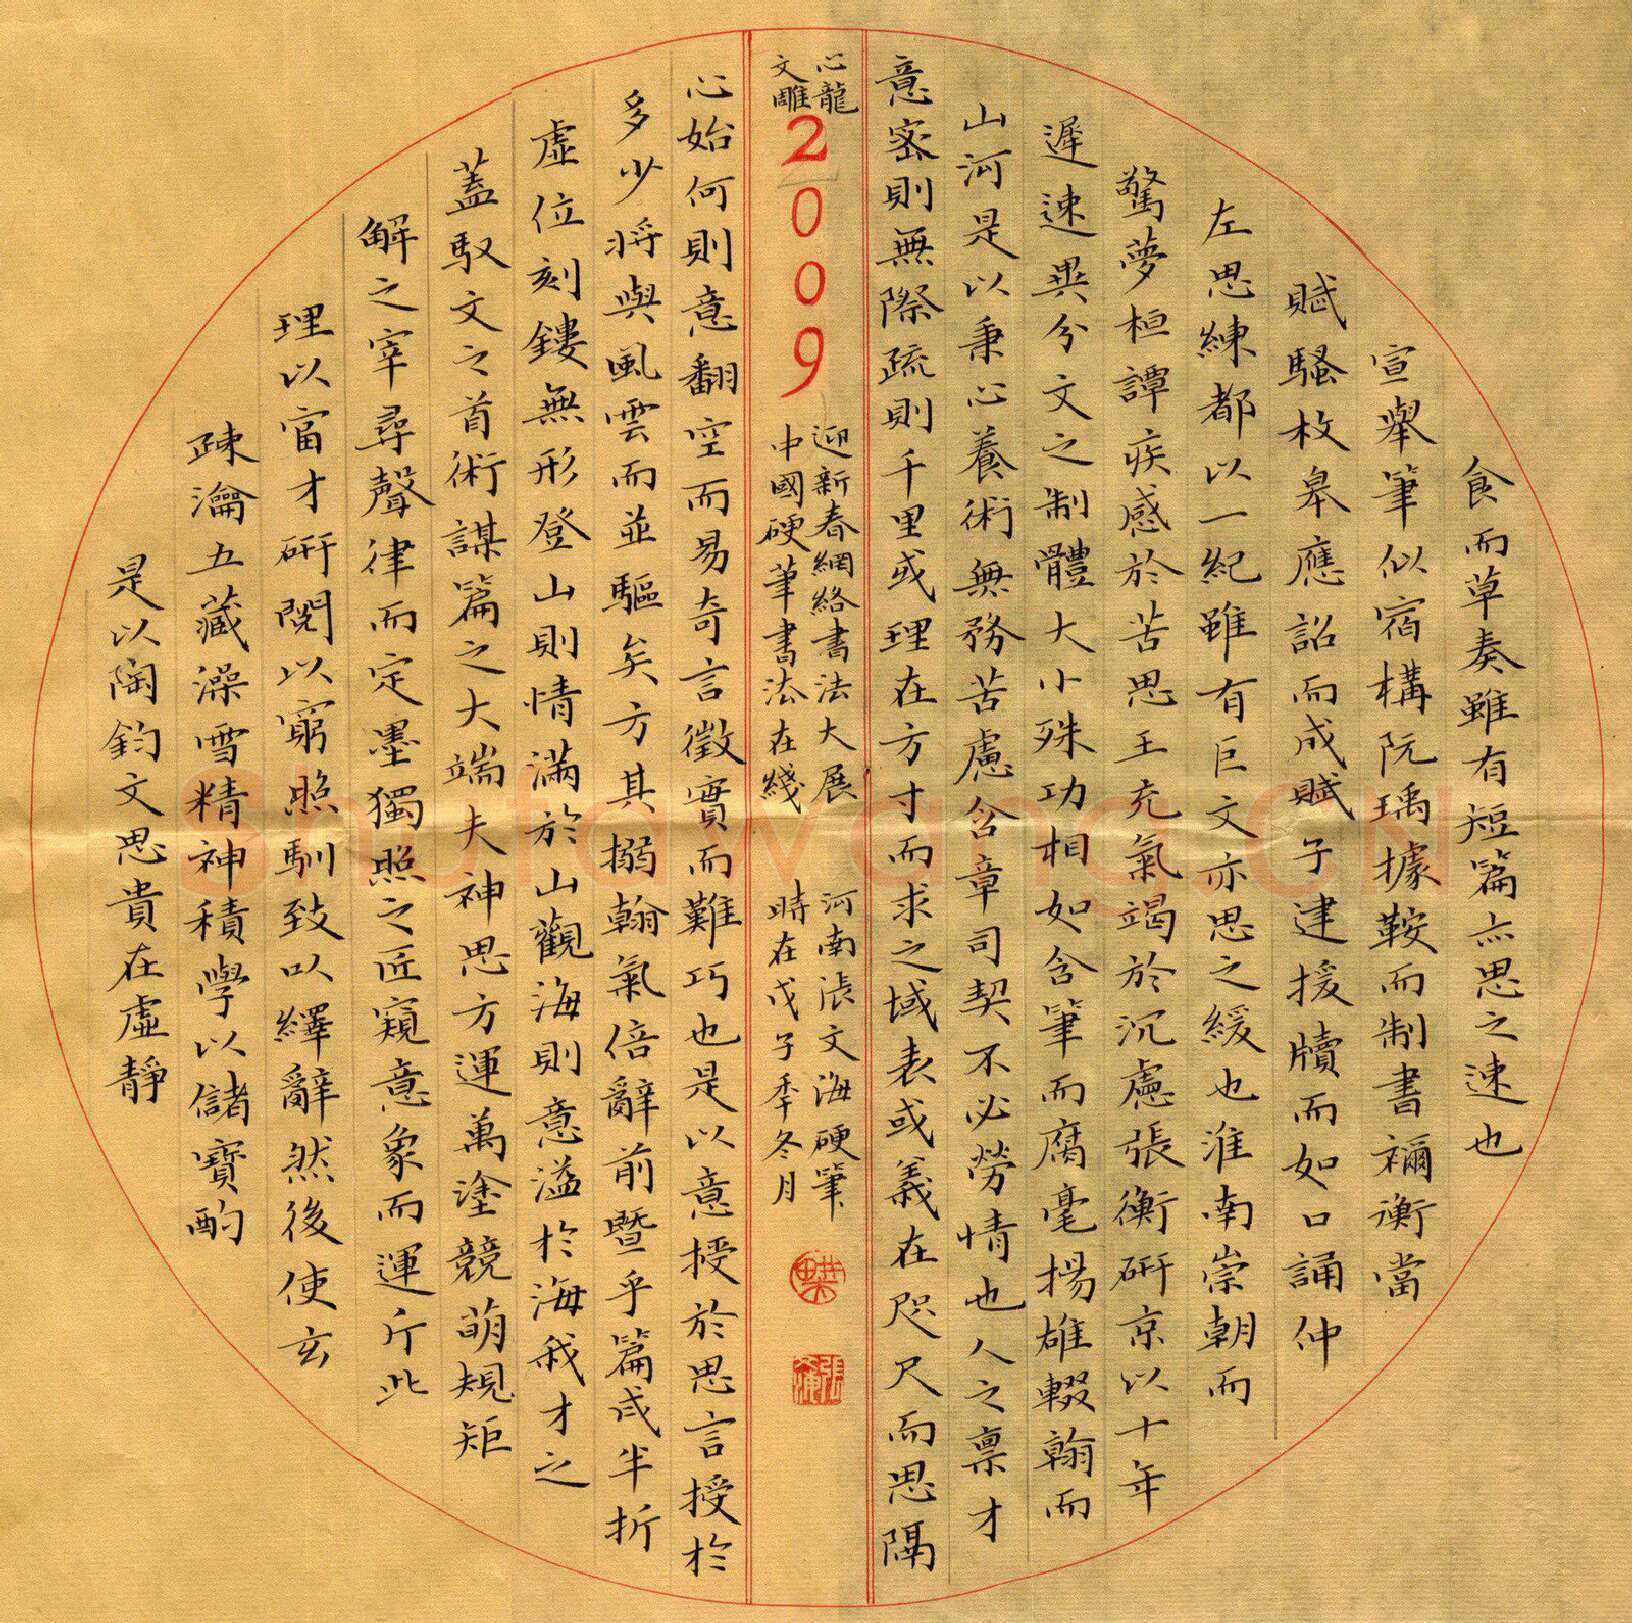 是以陶鈞文思貴在虛靜
疎瀹五藏澡雪精神積學以儲寶酌
理以富才研閱以窮照馴致以繹辭然後使玄
解之宰尋聲律而定墨獨照之匠窺意象而運斤此
蓋馭文之首術謀篇之大端夫神思方運萬塗競萌規矩
虛位刻鏤無形登山則情滿於山觀海則意溢於海我才之
多少將與風雲而並驅矣方其搦翰氣倍辭前暨乎篇成半折
心始何則意翻空而易奇言徵實而難巧也是以意授於思言授於
文心
雕龍
2009
中國硬筆書法在綫
迎新春網絡書法大展
時在戊子季冬月
河南張文海硬筆
意密則無際疏則千里或理在方寸而求之域表或義在咫尺而思隔
山河是以秉心養術無務苦慮含章司契不必勞情也人之禀才
遲速異分文之制體大小殊功相如含筆而腐毫揚雄輟翰而
驚夢桓譚疾感於苦思王充氣竭於沉慮張衡研京以十年
左思練都以一紀雖有巨文亦思之緩也淮南崇朝而
賦騷枚皋應詔而成賦子建援牘而如口誦仲
宣舉筆似宿構阮瑀據鞍而制書禰衡當
食而草奏雖有短篇亦思之速也
Shufawang.CN